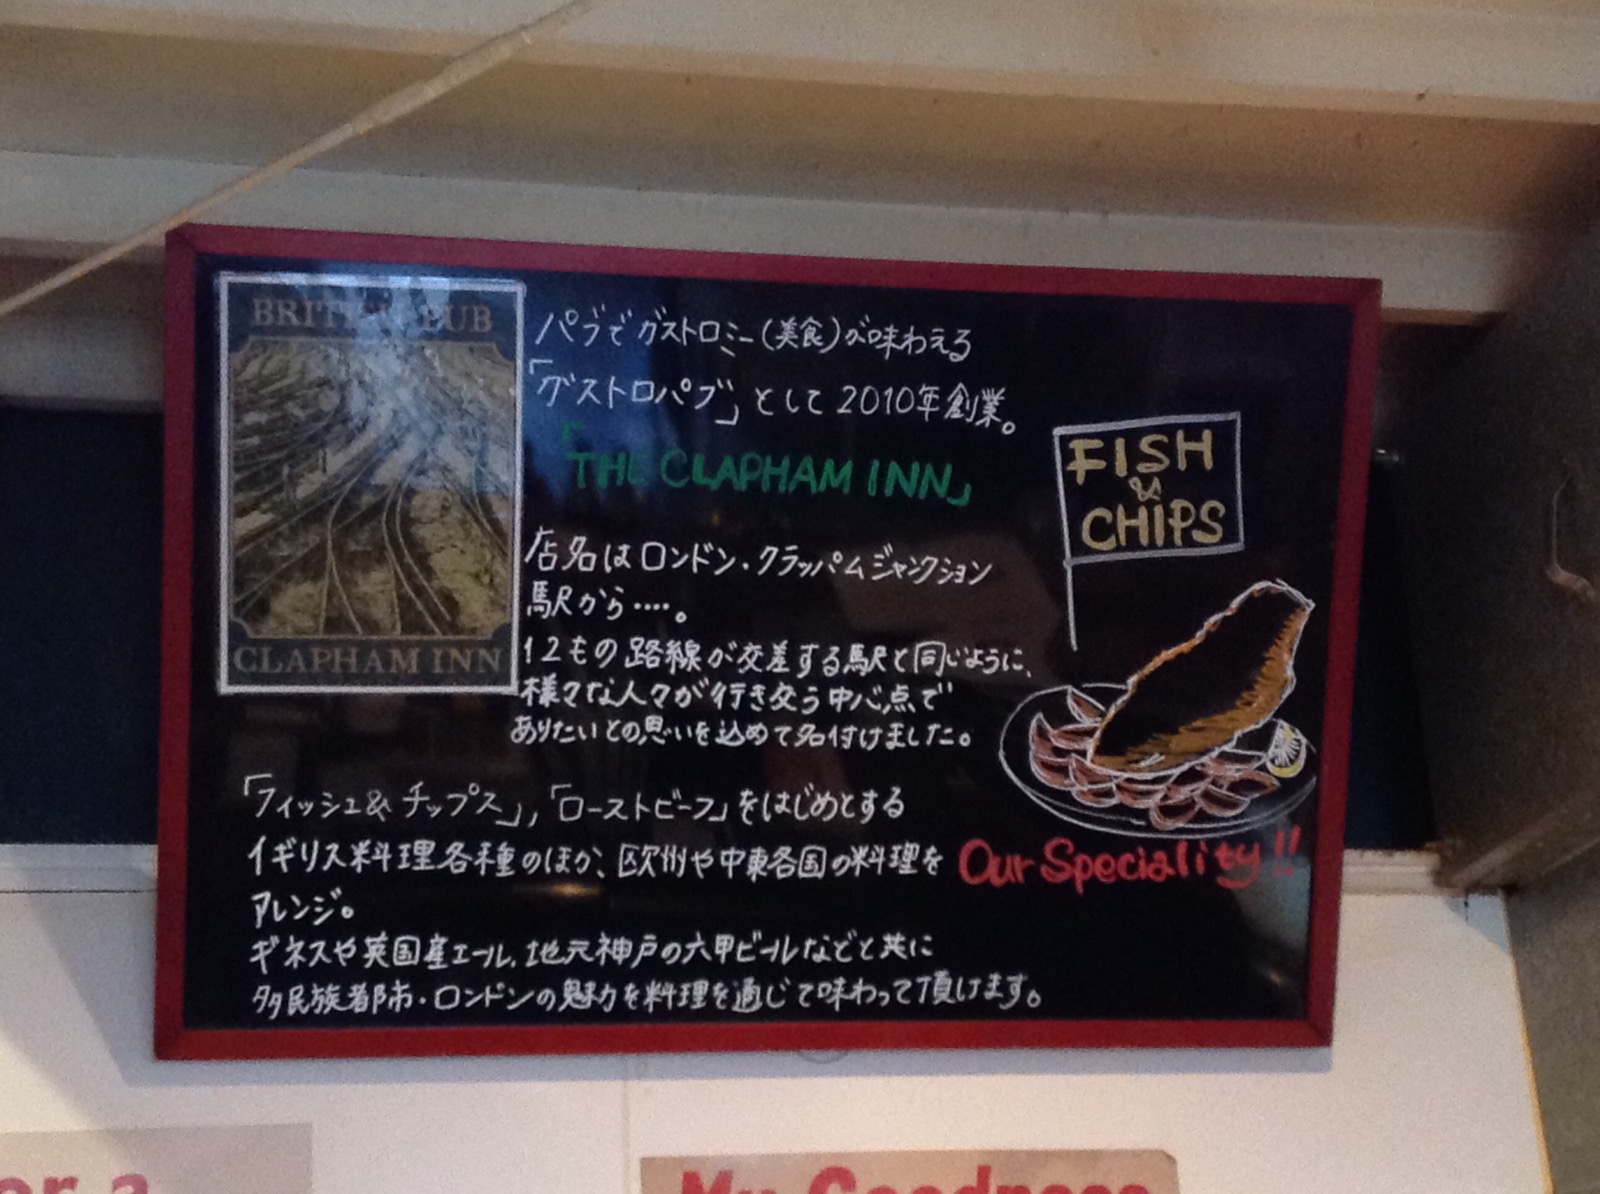 BRITISH PUB
CLAPHAM INN
パブでガストロミー(美食)が味わえる
「ガストロパブ」として2010年創業。
「THE CLAPHAM INN」
店名はロンドン・クラッパムジャンクション
駅から・・・・。
12もの路線が交差する駅と同じように、
様々な人々が行き交う中心点で
ありたいとの思いを込めて名付けました。
FISH
&
CHIPS
「フィッシュ&チップス」,「ローストビーフ」をはじめとする
イギリス料理各種のほか、欧州や中東各国の料理を
アレンジ。
ギネスや英国産エール、地元神戸の六甲ビールなどと共に
多民族都市・ロンドンの魅力を料理を通じて味わって頂けます。
Our Speciality!!
for a
My Goodness